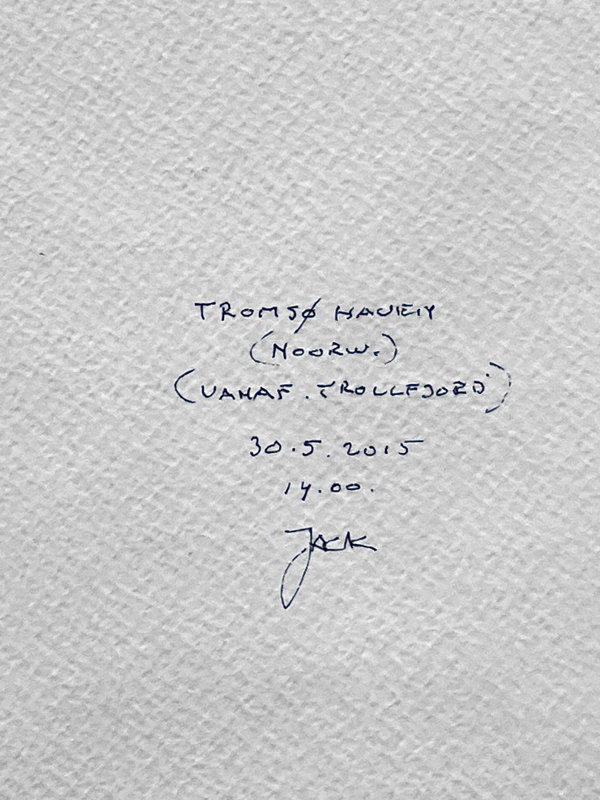 TROMSØ HAVEN
(NOORW.)
(VANAF. TROLLFJORD)
30.5.2015
14.00.
JACK